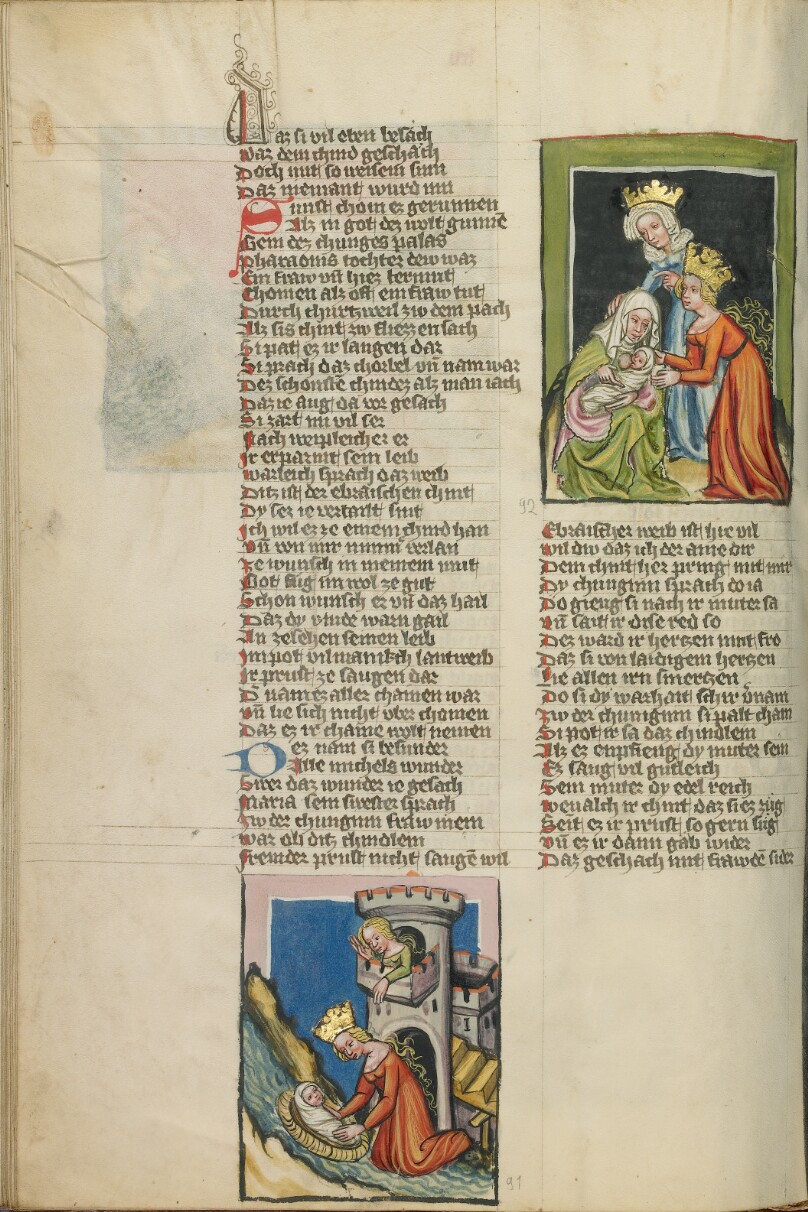 Daz si vil eben besach
Waz dem chind geschach
Doch mit so weisem sinn
Daz niemant wurd inn
Sunst chom ez gerunnen
Alz in got des wolt gunnē
Gein des chunges palas
Pharaonis tochter dew waz
Ein fraw vn̄ hiez termut
Chomen alz oft ein fraw tut
Durch churtzweil zw dem pach
Alz sis chint zw fliezzen sach
Si pat ez ir langen dar
Si prach daz chorbel vn̄ nam war
Des schonste chindez alz man iach
Daz ie aug da vor gesach
Si zart im vil ser
Nach weipleicher er
Ir erparmt sein leib
Warleich sprach daz weib
Ditz ist der ebraischen chint
Dy ser ie vertailt sint
Ich wil ez ze einem chind han
Vn̄ von mir nimm verlan
Ze wunsch in meinem mut
Got fug im wol ze gut
Schon wunsch er vn̄ daz hail
Daz dy vinde warn gail
An zesehen seinen leib
Im pot vil manikch lantweib
Ir prust ze saugen dar
Dꝰ nam ez aller chainen war
Vn̄ lie sich nicht vber chomen
Daz ez ir chaine wolt nemen
Dez nam si besunder
Alle michels wunder
Swer daz wunder ie gesach
Maria sein swester sprach
Zw der chunginn fraw mein
War ob ditz chindlein
Fremder prust nicht saugē wil
91
92
Ebraischer weib ist hie vil
Wil dw daz ich der aine dir
Dem chint her pring mit mir
Dy chunginn sprach do ia
Do gieng si nach ir muter sa
Vn̄ sait ir dise red so
Dez ward ir hertzen mut fro
Daz si von laidigem hertzen
Lie allen irn smertzen
Do si dy warhait schir v̓nam
Zw der chunginn si palt cham
Si pot ir sa daz chindlein
Alz ez enpfieng dy muter sein
Ez saug vil gutleich
Sein muter dy edel reich
Wevalch ir chint daz si ez zug
Seit ez ir prust so gern sug
Vn̄ ez ir dann gab wider
Daz geschach mit frawdē sider